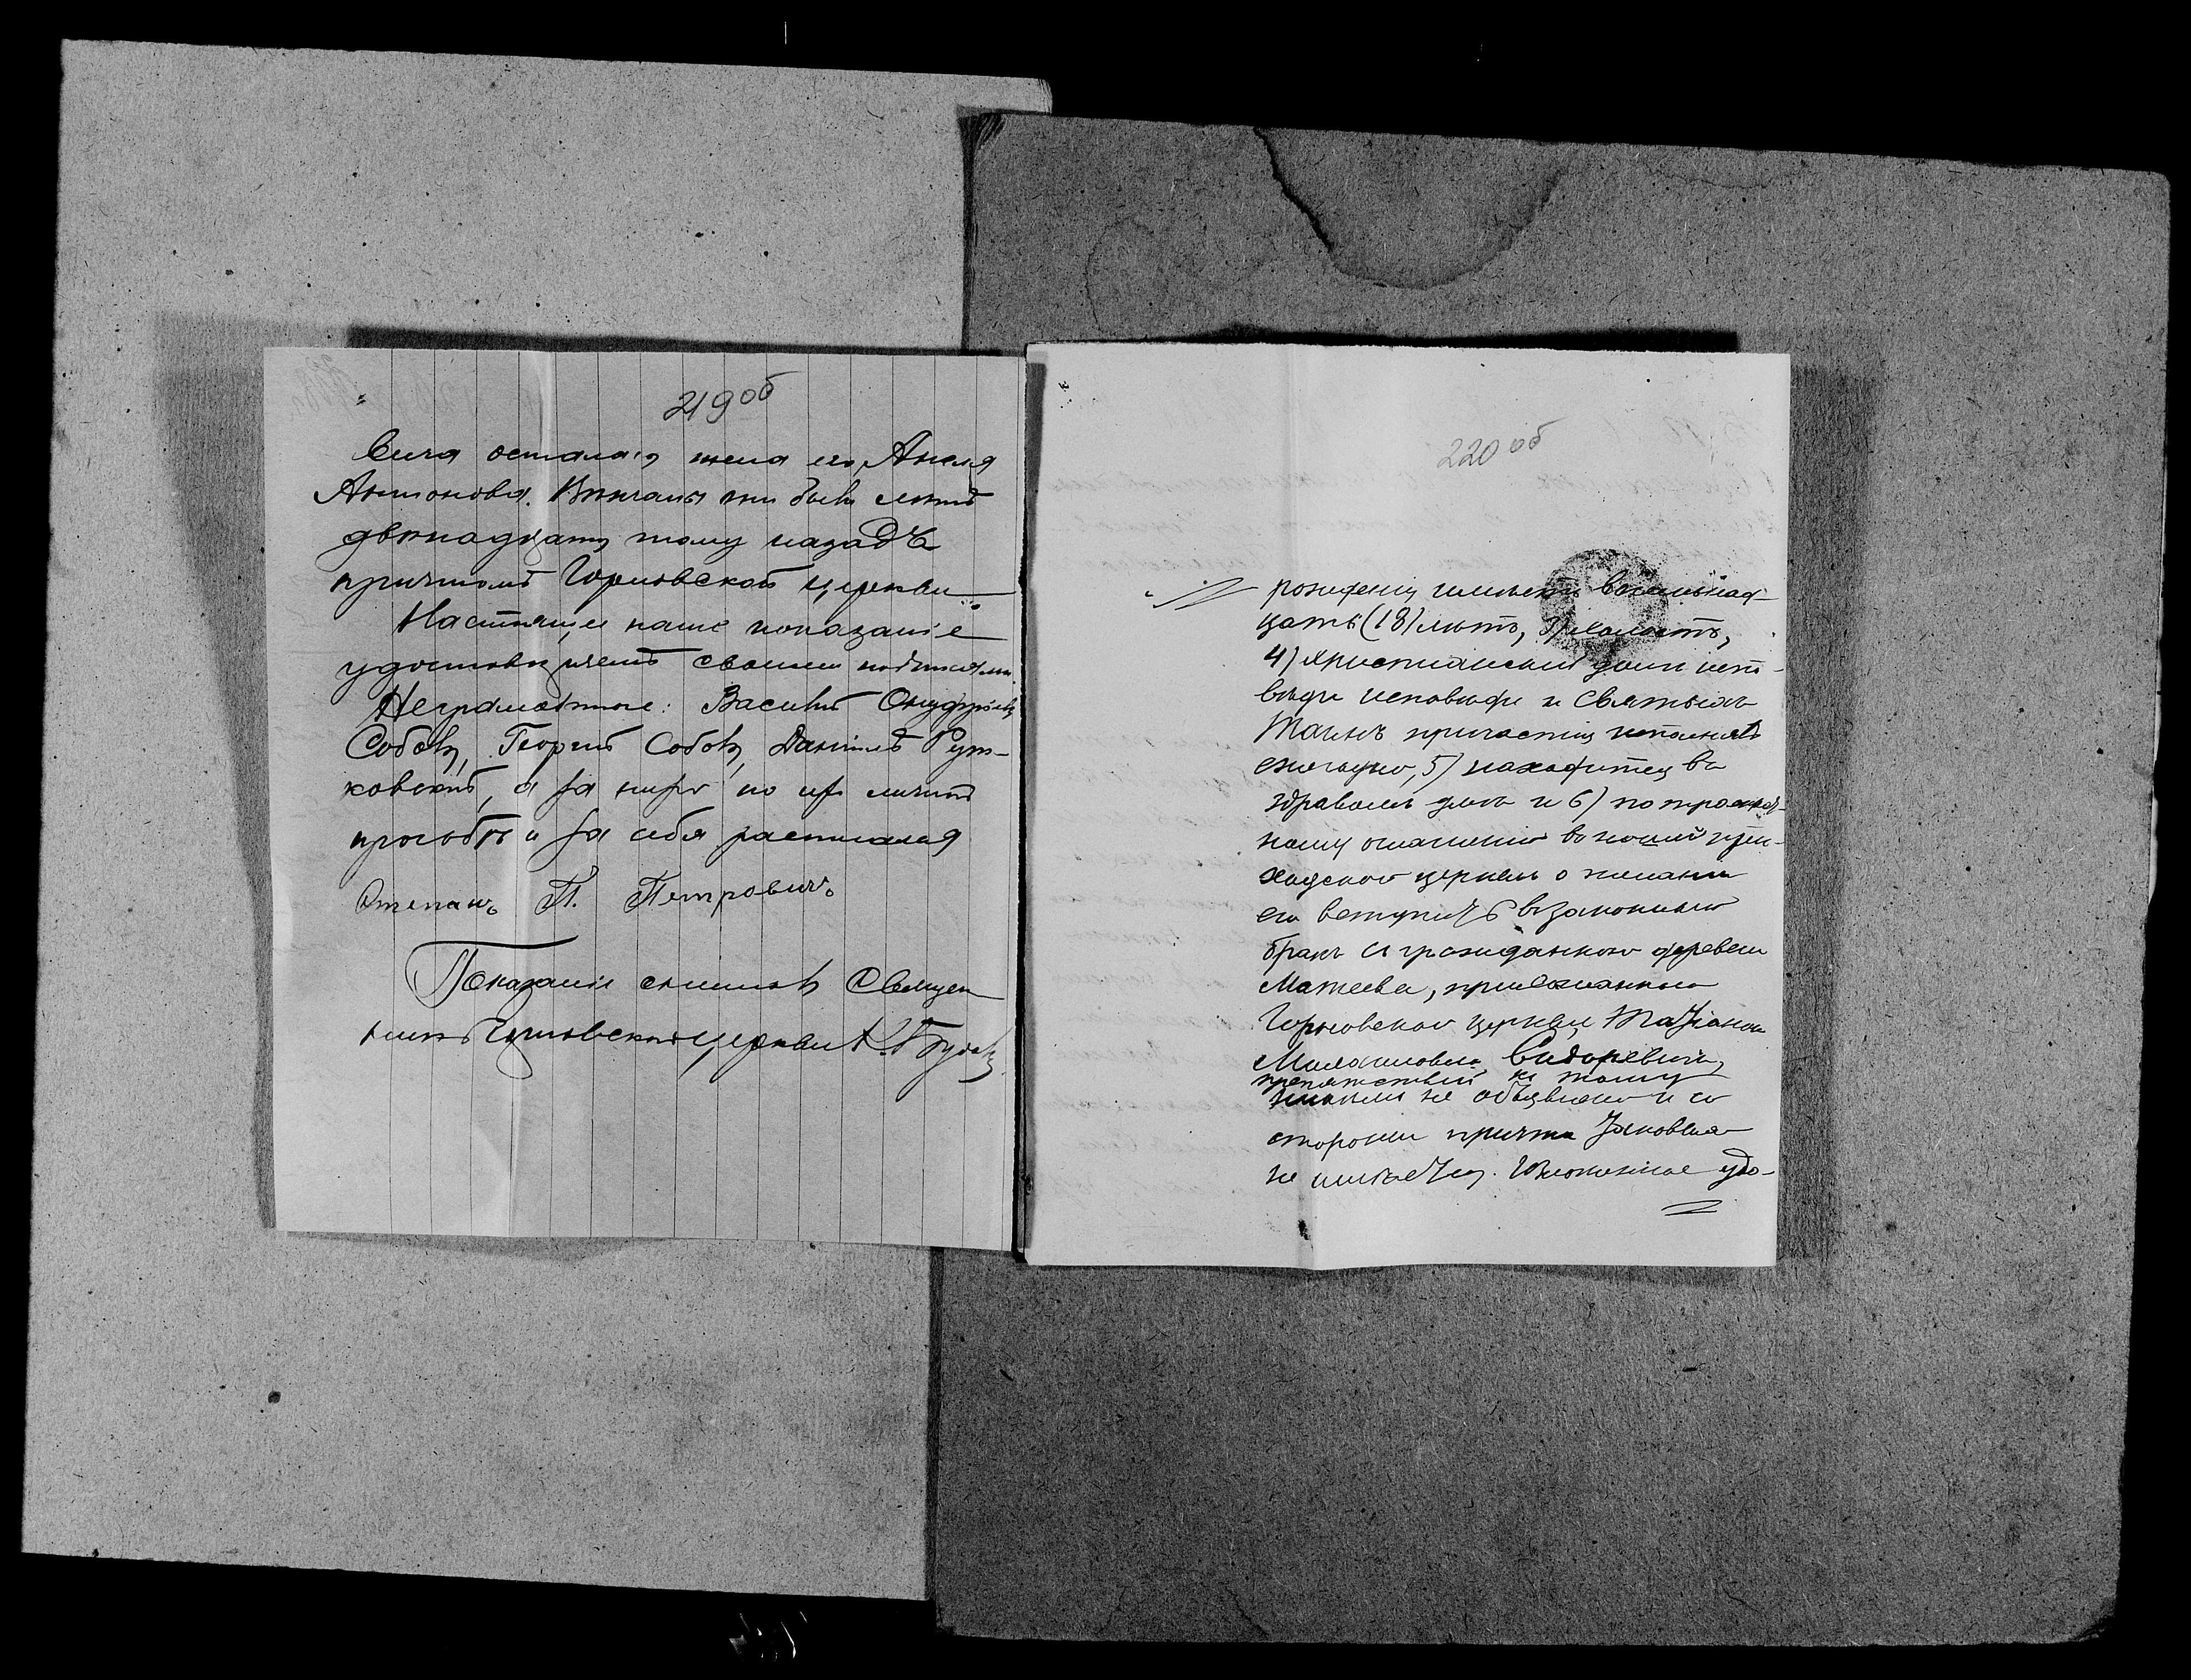 219 об
вича осталась жена его, Анеля
Антоновна. Вѣнчаны они были лѣтъ
двѣнадцать тому назадъ
причтомъ Горновской церкви.
Настоящее наше показаніе
удостовѣряемъ своими подписями.
Неграмотные: Василій Онуфріевъ
Соболь, Георгій Соболь, Даніилъ Рут-
ковскій, а за нихъ по ихъ личной
просьбѣ и за себя расписался
Степанъ П. Петровичъ
Показаніе снималъ Священ-
никъ Горновской церкви К.
220 об
рожденія имѣетъ восемнад-
цать (18) лѣтъ,
4) христіанскій долгъ испо-
вѣди и Святыхъ
Таинъ причастія исполнялъ
ежегодно, 5) находится въ
здравомъ умѣ и 6) по троекрат-
ному оглашенію въ нашей при-
ходской церкви о желаніи
его вступить въ законный
бракъ съ гражданкою деревни
Матеевка, прихожанкою
Горновской церкви Татіаною
Сидоревичъ,
препятствій къ тому
никѣмъ не объявлено и со
стороны причта таковыя
не имѣется. Изложенное удо-